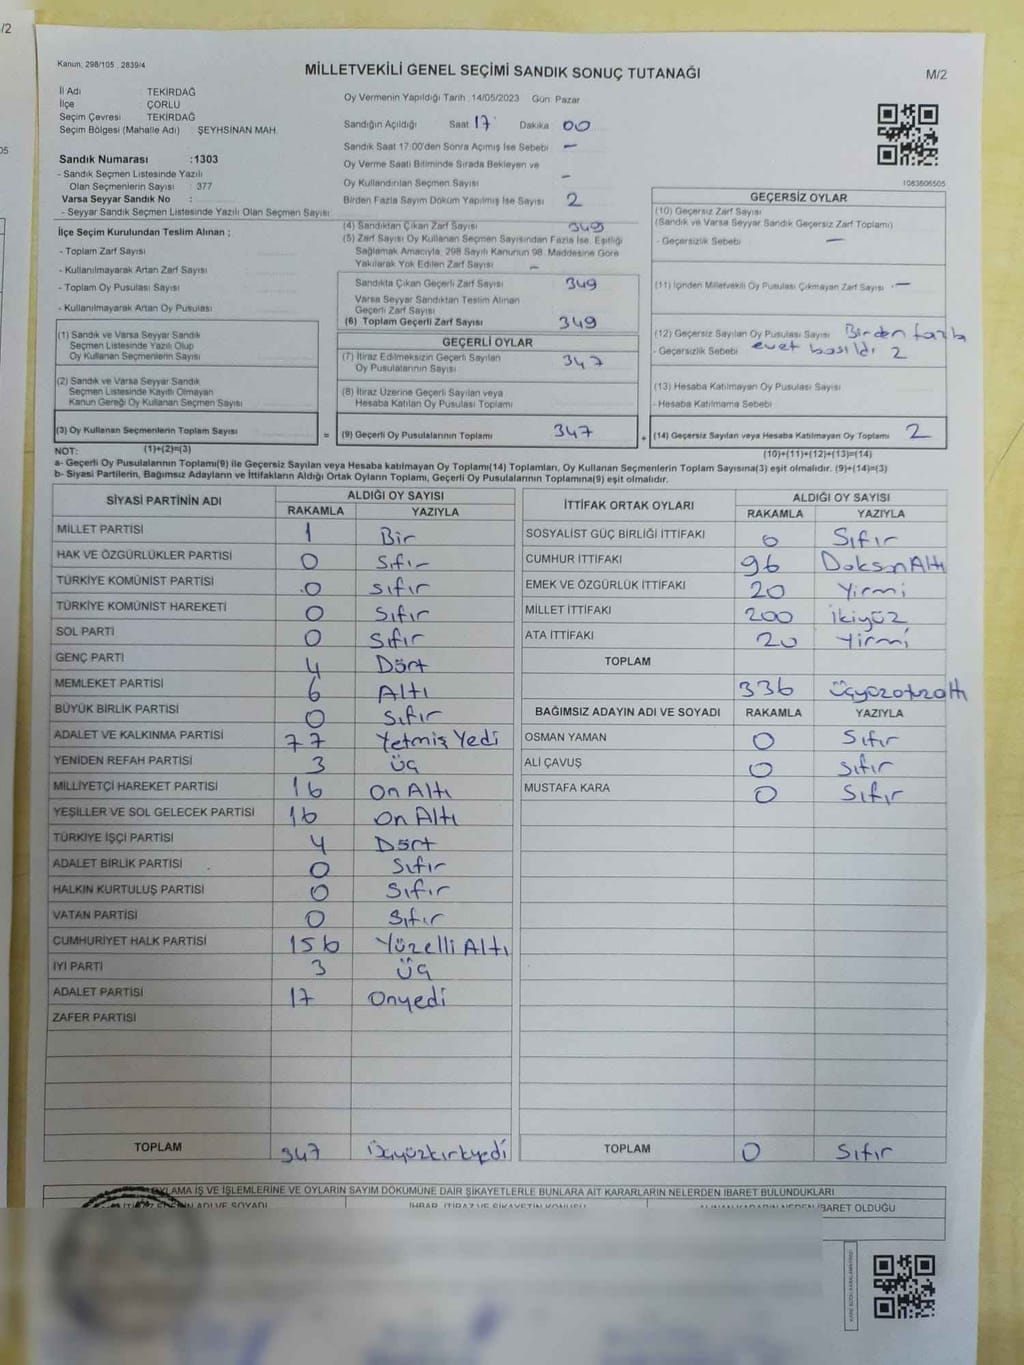 /2
05
Kanun: 298/105 . 2839/4
MİLLETVEKİLİ GENEL SEÇİMİ SANDIK SONUÇ TUTANAĞI
M/2
İl Adı : TEKİRDAĞ
İlçe : ÇORLU
Seçim Çevresi : TEKİRDAĞ
Seçim Bölgesi (Mahalle Adı) : ŞEYHSİNAN MAH.
Sandık Numarası :1303
- Sandık Seçmen Listesinde Yazılı
Olan Seçmenlerin Sayısı : 377
Varsa Seyyar Sandık No :
- Seyyar Sandık Seçmen Listesinde Yazılı Olan Seçmen Sayısı :
Oy Vermenin Yapıldığı Tarih :14/05/2023 Gün Pazar
Sandığın Açıldığı Saat 17 Dakika 00
Sandık Saat 17:00'den Sonra Açılmış İse Sebebi —
Oy Verme Saati Bitiminde Sırada Bekleyen ve
Oy Kullandırılan Seçmen Sayısı —
Birden Fazla Sayım Döküm Yapılmış İse Sayısı 2
1083606505
İlçe Seçim Kurulundan Teslim Alınan ;
- Toplam Zarf Sayısı
- Kullanılmayarak Artan Zarf Sayısı
- Toplam Oy Pusulası Sayısı
- Kullanılmayarak Artan Oy Pusulası
(1) Sandık ve Varsa Seyyar Sandık
Seçmen Listesinde Yazılı Olup
Oy Kullanan Seçmenlerin Sayısı
(2) Sandık ve Varsa Seyyar Sandık
Seçmen Listesinde Kayıtlı Olmayan
Kanun Gereği Oy Kullanan Seçmen Sayısı
(3) Oy Kullanan Seçmenlerin Toplam Sayısı
(4) Sandıktan Çıkan Zarf Sayısı 349
(5) Zarf Sayısı Oy Kullanan Seçmen Sayısından Fazla İse, Eşitliği
Sağlamak Amacıyla, 298 Sayılı Kanunun 98. Maddesine Göre
Yakılarak Yok Edilen Zarf Sayısı —
Sandıkta Çıkan Geçerli Zarf Sayısı 349
Varsa Seyyar Sandıktan Teslim Alınan
Geçerli Zarf Sayısı
(6) Toplam Geçerli Zarf Sayısı 349
GEÇERLİ OYLAR
(7) İtiraz Edilmeksizin Geçerli Sayılan
Oy Pusulalarının Sayısı 347
(8) İtiraz Üzerine Geçerli Sayılan veya
Hesaba Katılan Oy Pusulası Toplamı
= (9) Geçerli Oy Pusulalarının Toplamı 347
GEÇERSİZ OYLAR
(10) Geçersiz Zarf Sayısı
(Sandık ve Varsa Seyyar Sandık Geçersiz Zarf Toplamı)
- Geçersizlik Sebebi —
(11) İçinden Milletvekili Oy Pusulası Çıkmayan Zarf Sayısı —
(12) Geçersiz Sayılan Oy Pusulası Sayısı Birden fazla
- Geçersizlik Sebebi evet basıldı 2
(13) Hesaba Katılmayan Oy Pusulası Sayısı
- Hesaba Katılmama Sebebi
+ (14) Geçersiz Sayılan veya Hesaba Katılmayan Oy Toplamı 2
NOT: (1)+(2)=(3) (10)+(11)+(12)+(13)=(14)
a- Geçerli Oy Pusulalarının Toplamı(9) ile Geçersiz Sayılan veya Hesaba katılmayan Oy Toplamı(14) Toplamları, Oy Kullanan Seçmenlerin Toplam Sayısına(3) eşit olmalıdır. (9)+(14)=(3)
b- Siyasi Partilerin, Bağımsız Adayların ve İttifakların Aldığı Ortak Oyların Toplamı, Geçerli Oy Pusulalarının Toplamına(9) eşit olmalıdır.
SİYASİ PARTİNİN ADI ALDIĞI OY SAYISI
RAKAMLA YAZIYLA
MİLLET PARTİSİ 1 Bir
HAK VE ÖZGÜRLÜKLER PARTİSİ 0 Sıfır
TÜRKİYE KOMÜNİST PARTİSİ 0 sıfır
TÜRKİYE KOMÜNİST HAREKETİ 0 Sıfır
SOL PARTİ 0 Sıfır
GENÇ PARTİ 4 Dört
MEMLEKET PARTİSİ 6 Altı
BÜYÜK BİRLİK PARTİSİ 0 Sıfır
ADALET VE KALKINMA PARTİSİ 77 Yetmiş Yedi
YENİDEN REFAH PARTİSİ 3 Üç
MİLLİYETÇİ HAREKET PARTİSİ 16 On Altı
YEŞİLLER VE SOL GELECEK PARTİSİ 16 On Altı
TÜRKİYE İŞÇİ PARTİSİ 4 Dört
ADALET BİRLİK PARTİSİ 0 Sıfır
HALKIN KURTULUŞ PARTİSİ 0 Sıfır
VATAN PARTİSİ 0 Sıfır
CUMHURİYET HALK PARTİSİ 156 Yüzelli Altı
İYİ PARTİ 3 Üç
ADALET PARTİSİ 17 Onyedi
ZAFER PARTİSİ
TOPLAM 347 Üçyüzkırkyedi
İTTİFAK ORTAK OYLARI ALDIĞI OY SAYISI
RAKAMLA YAZIYLA
SOSYALİST GÜÇ BİRLİĞİ İTTİFAKI 0 Sıfır
CUMHUR İTTİFAKI 96 Doksan Altı
EMEK VE ÖZGÜRLÜK İTTİFAKI 20 Yirmi
MİLLET İTTİFAKI 200 İkiyüz
ATA İTTİFAKI 20 Yirmi
TOPLAM
336 Üçyüzotuzaltı
BAĞIMSIZ ADAYIN ADI VE SOYADI RAKAMLA YAZIYLA
OSMAN YAMAN 0 Sıfır
ALİ ÇAVUŞ 0 Sıfır
MUSTAFA KARA 0 Sıfır
TOPLAM 0 Sıfır
OYLAMA İŞ VE İŞLEMLERİNE VE OYLARIN SAYIM DÖKÜMÜNE DAİR ŞİKAYETLERLE BUNLARA AİT KARARLARIN NELERDEN İBARET BULUNDUKLARI
İHBAR, İTİRAZ VE ŞİKAYETİN KONUSU